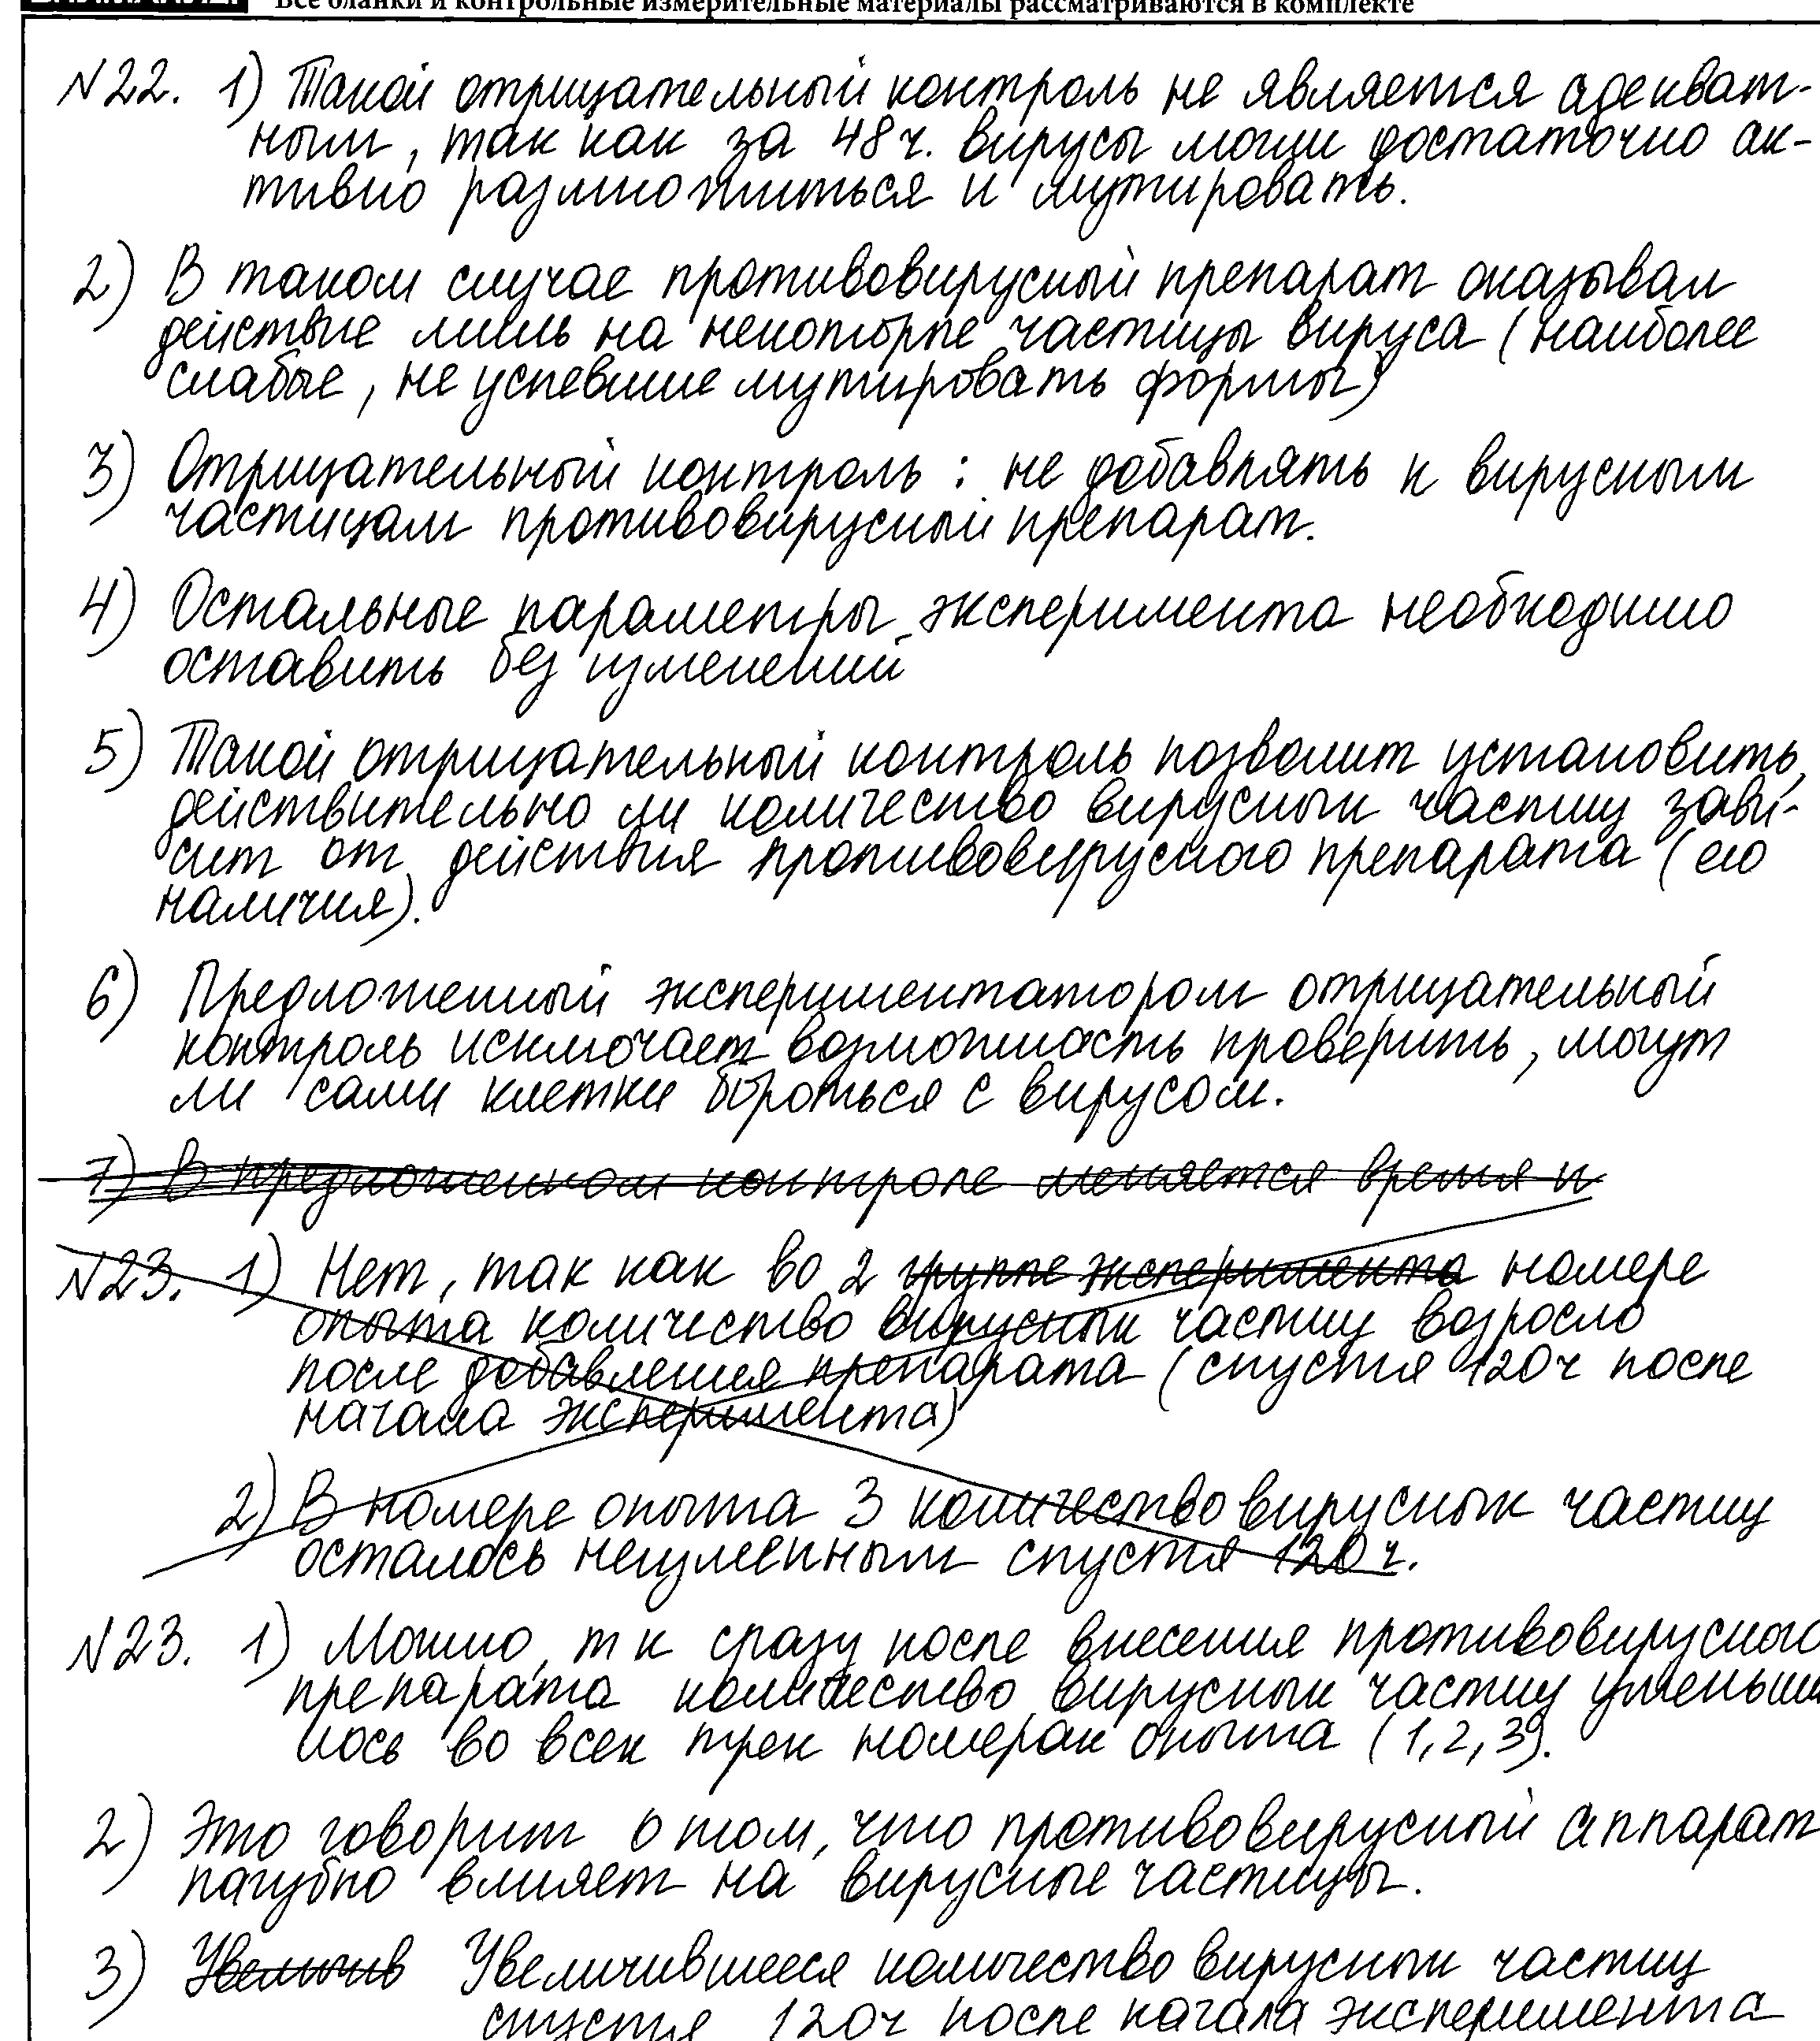 Все бланки и контрольные измерительные материалы рассматриваются в комплекте
№22. 1) Такой отрицательный контроль не является адекват-
ным, так как за 48 ч. вирусы могли достаточно ак-
тивно размножиться и мутировать.
2) В таком случае противовирусный препарат оказывал
действие лишь на некоторые частицы вируса (наиболее
слабые, не успевшие мутировать формы)
3) Отрицательный контроль: не добавлять к вирусным
частицам противовирусный препарат.
4) Остальные параметры эксперимента необходимо
оставить без изменений
5) Такой отрицательный контроль позволит установить,
действительно ли количество вирусных частиц зави-
сит от действия противовирусного препарата (его
наличия).
6) Предложенный экспериментатором отрицательный
контроль исключает возможность проверить, могут
ли сами клетки бороться с вирусом.
7) В предложенном контроле меняется время и
№23. 1) Нет, так как во 2 группе эксперимента номере
опыта количество вирусных частиц возросло
после добавления препарата (спустя 120ч после
начала эксперимента)
2) В номере опыта 3 количество вирусных частиц
осталось неизменным спустя 120 ч.
№23. 1) Можно, т к сразу после внесения противовирусного
препарата количество вирусных частиц уменьши
лось во всех трех номерах опыта (1,2,3).
2) Это говорит о том, что противовирусный аппарат
пагубно влияет на вирусные частицы.
3) Увеличив Увеличившееся количество вирусных частиц
спустя 120ч после начала эксперимента